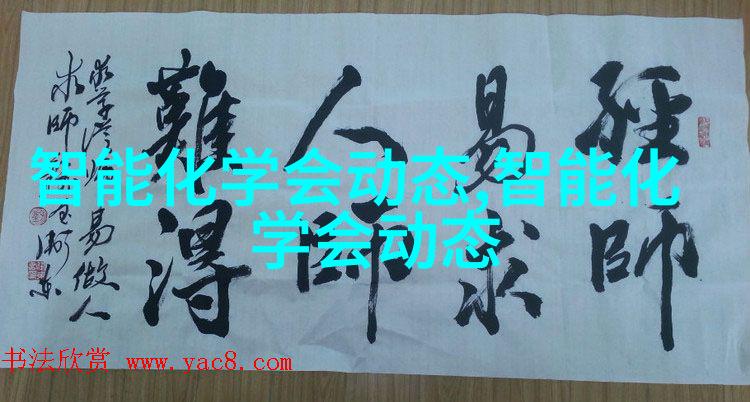 經師
易求
人師
難得
易做人
求師
智能化学会动态,智能化
学会动态
书法欣赏 www.yac8.com